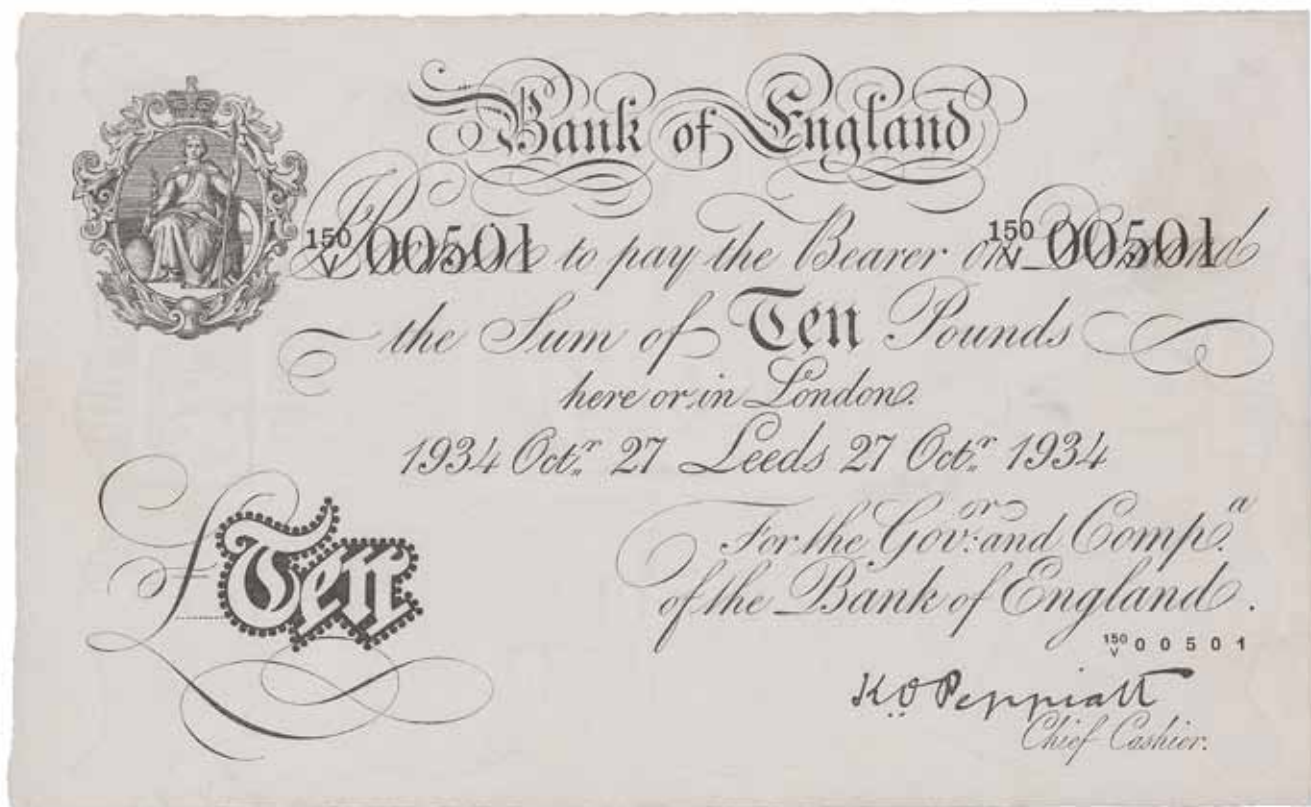 Bank of England
150/V 00501 to pay the Bearer on 150/V 00501
the Sum of Ten Pounds
here or in London.
1934 Octr. 27 Leeds 27 Octr. 1934
For the Govr. and Compa.
of the Bank of England.
£Ten
150/V 00501
K.O. Peppiatt
Chief Cashier.